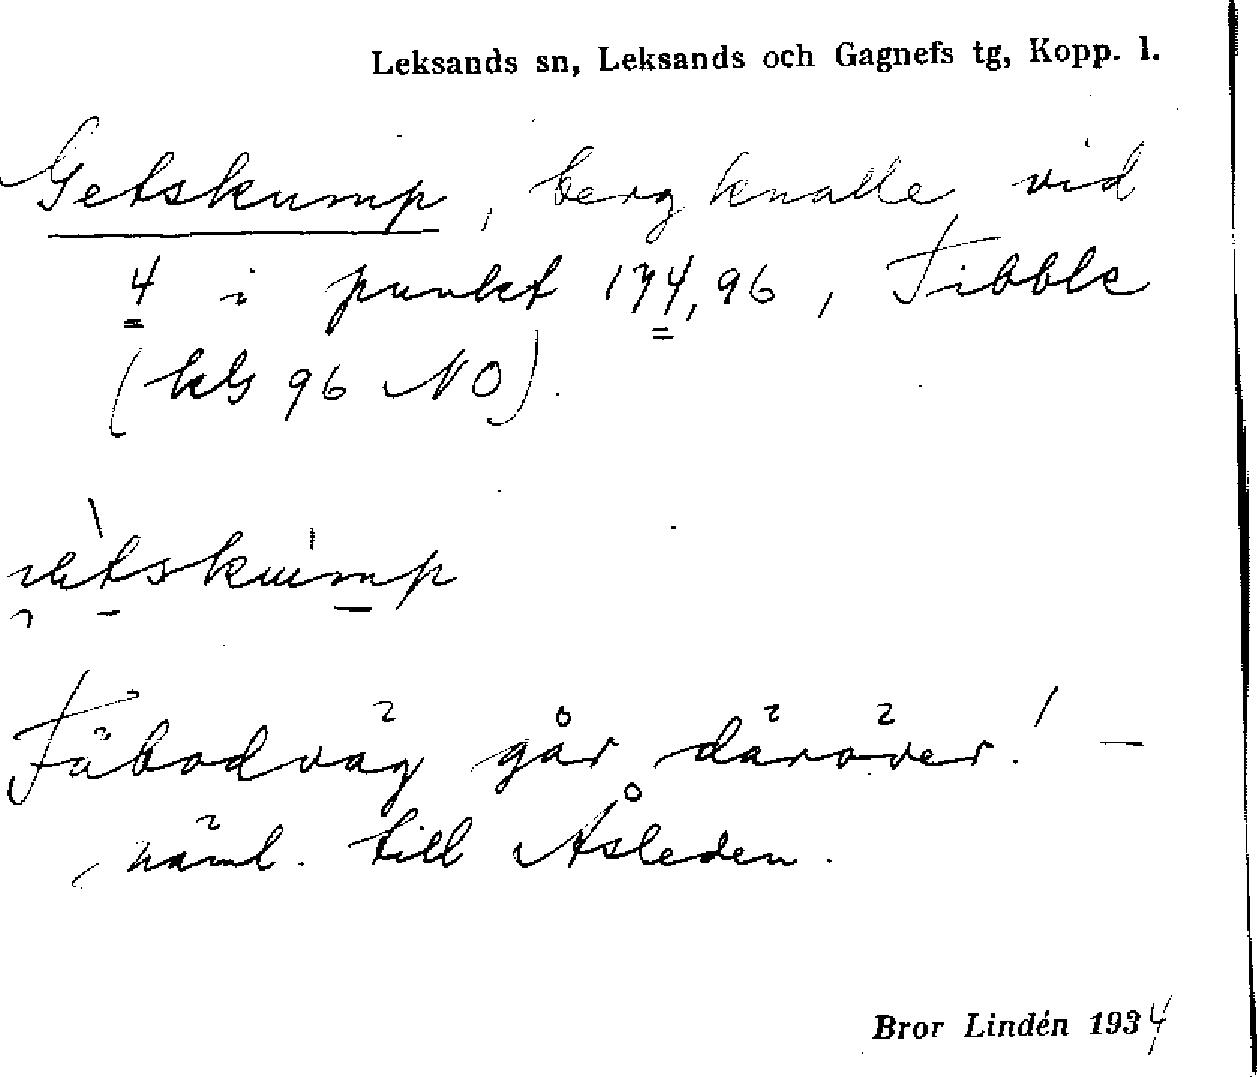 Leksands sn, Leksands och Gagnefs tg, Kopp. l.
Getskump, bergknalle vid
4 i punkt 174,96, Tibble
(kbl 96 NO).
Fäbodväg går däröver! –
näml. till Åsleden.
Bror Lindén 1934